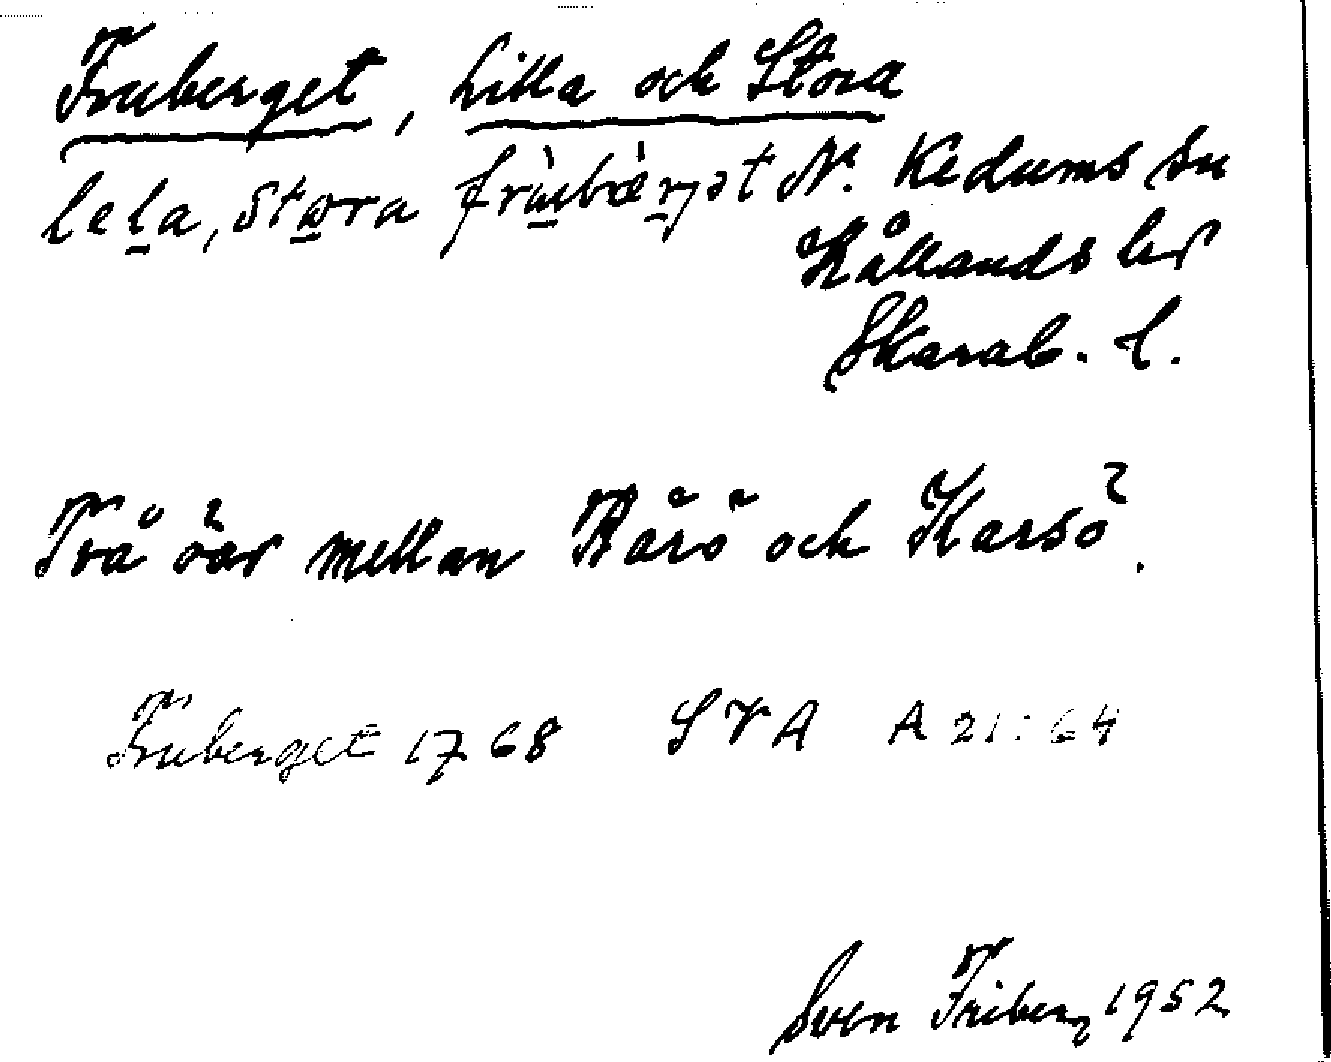 Fruberget, Lilla och Stora
lela, stora frùbærjət N. Kedums sn
Kållands hd
Skarab. l.
Två öar mellan Rårö och Karsö.
Fruberget 1768 LVA A 21:64
Sven Friberg 1952